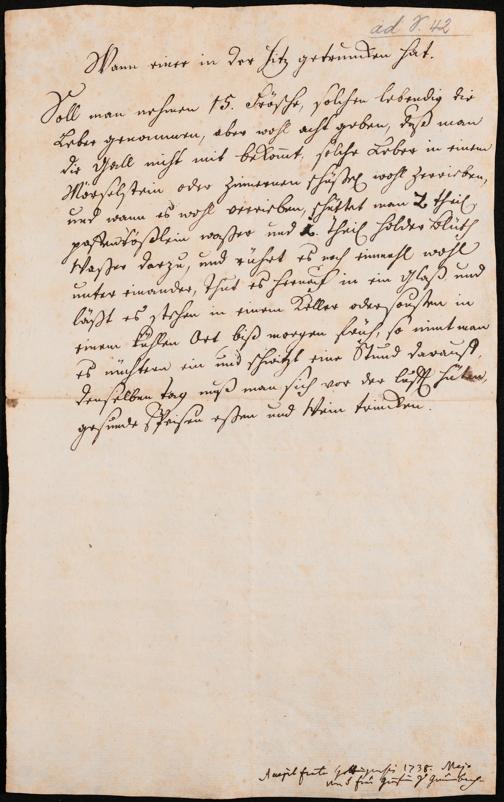 ad V. 42
Wann einer in der Hitz getruncken hat.
Soll man nehmen 15. Frösche, solchen lebendig die
Leber genommen, aber wohl acht geben, daß man
die Gall nicht mit bekomt, solche Leber in einem
Mörselstein oder Zinnernen schüssel wohl zerrieben,
und wann es wohl verrieben, schüttet man 2. theil
waßer und 1. theil Holder Blüth
Waßer darzu, und rührt es noch einmahl wohl
unter einander, Thut es hernach in ein Glaß und
läßt es stehen in einem Keller oder sonsten in
einem kühlen Ort biß morgen früh, so nimt man
es nüchtern ein und schwitzt eine Stund darauf,
denselben tag muß man sich vor der Lufft hüten,
gesunde Speisen eßen und Wein trincken.
1738. Majo